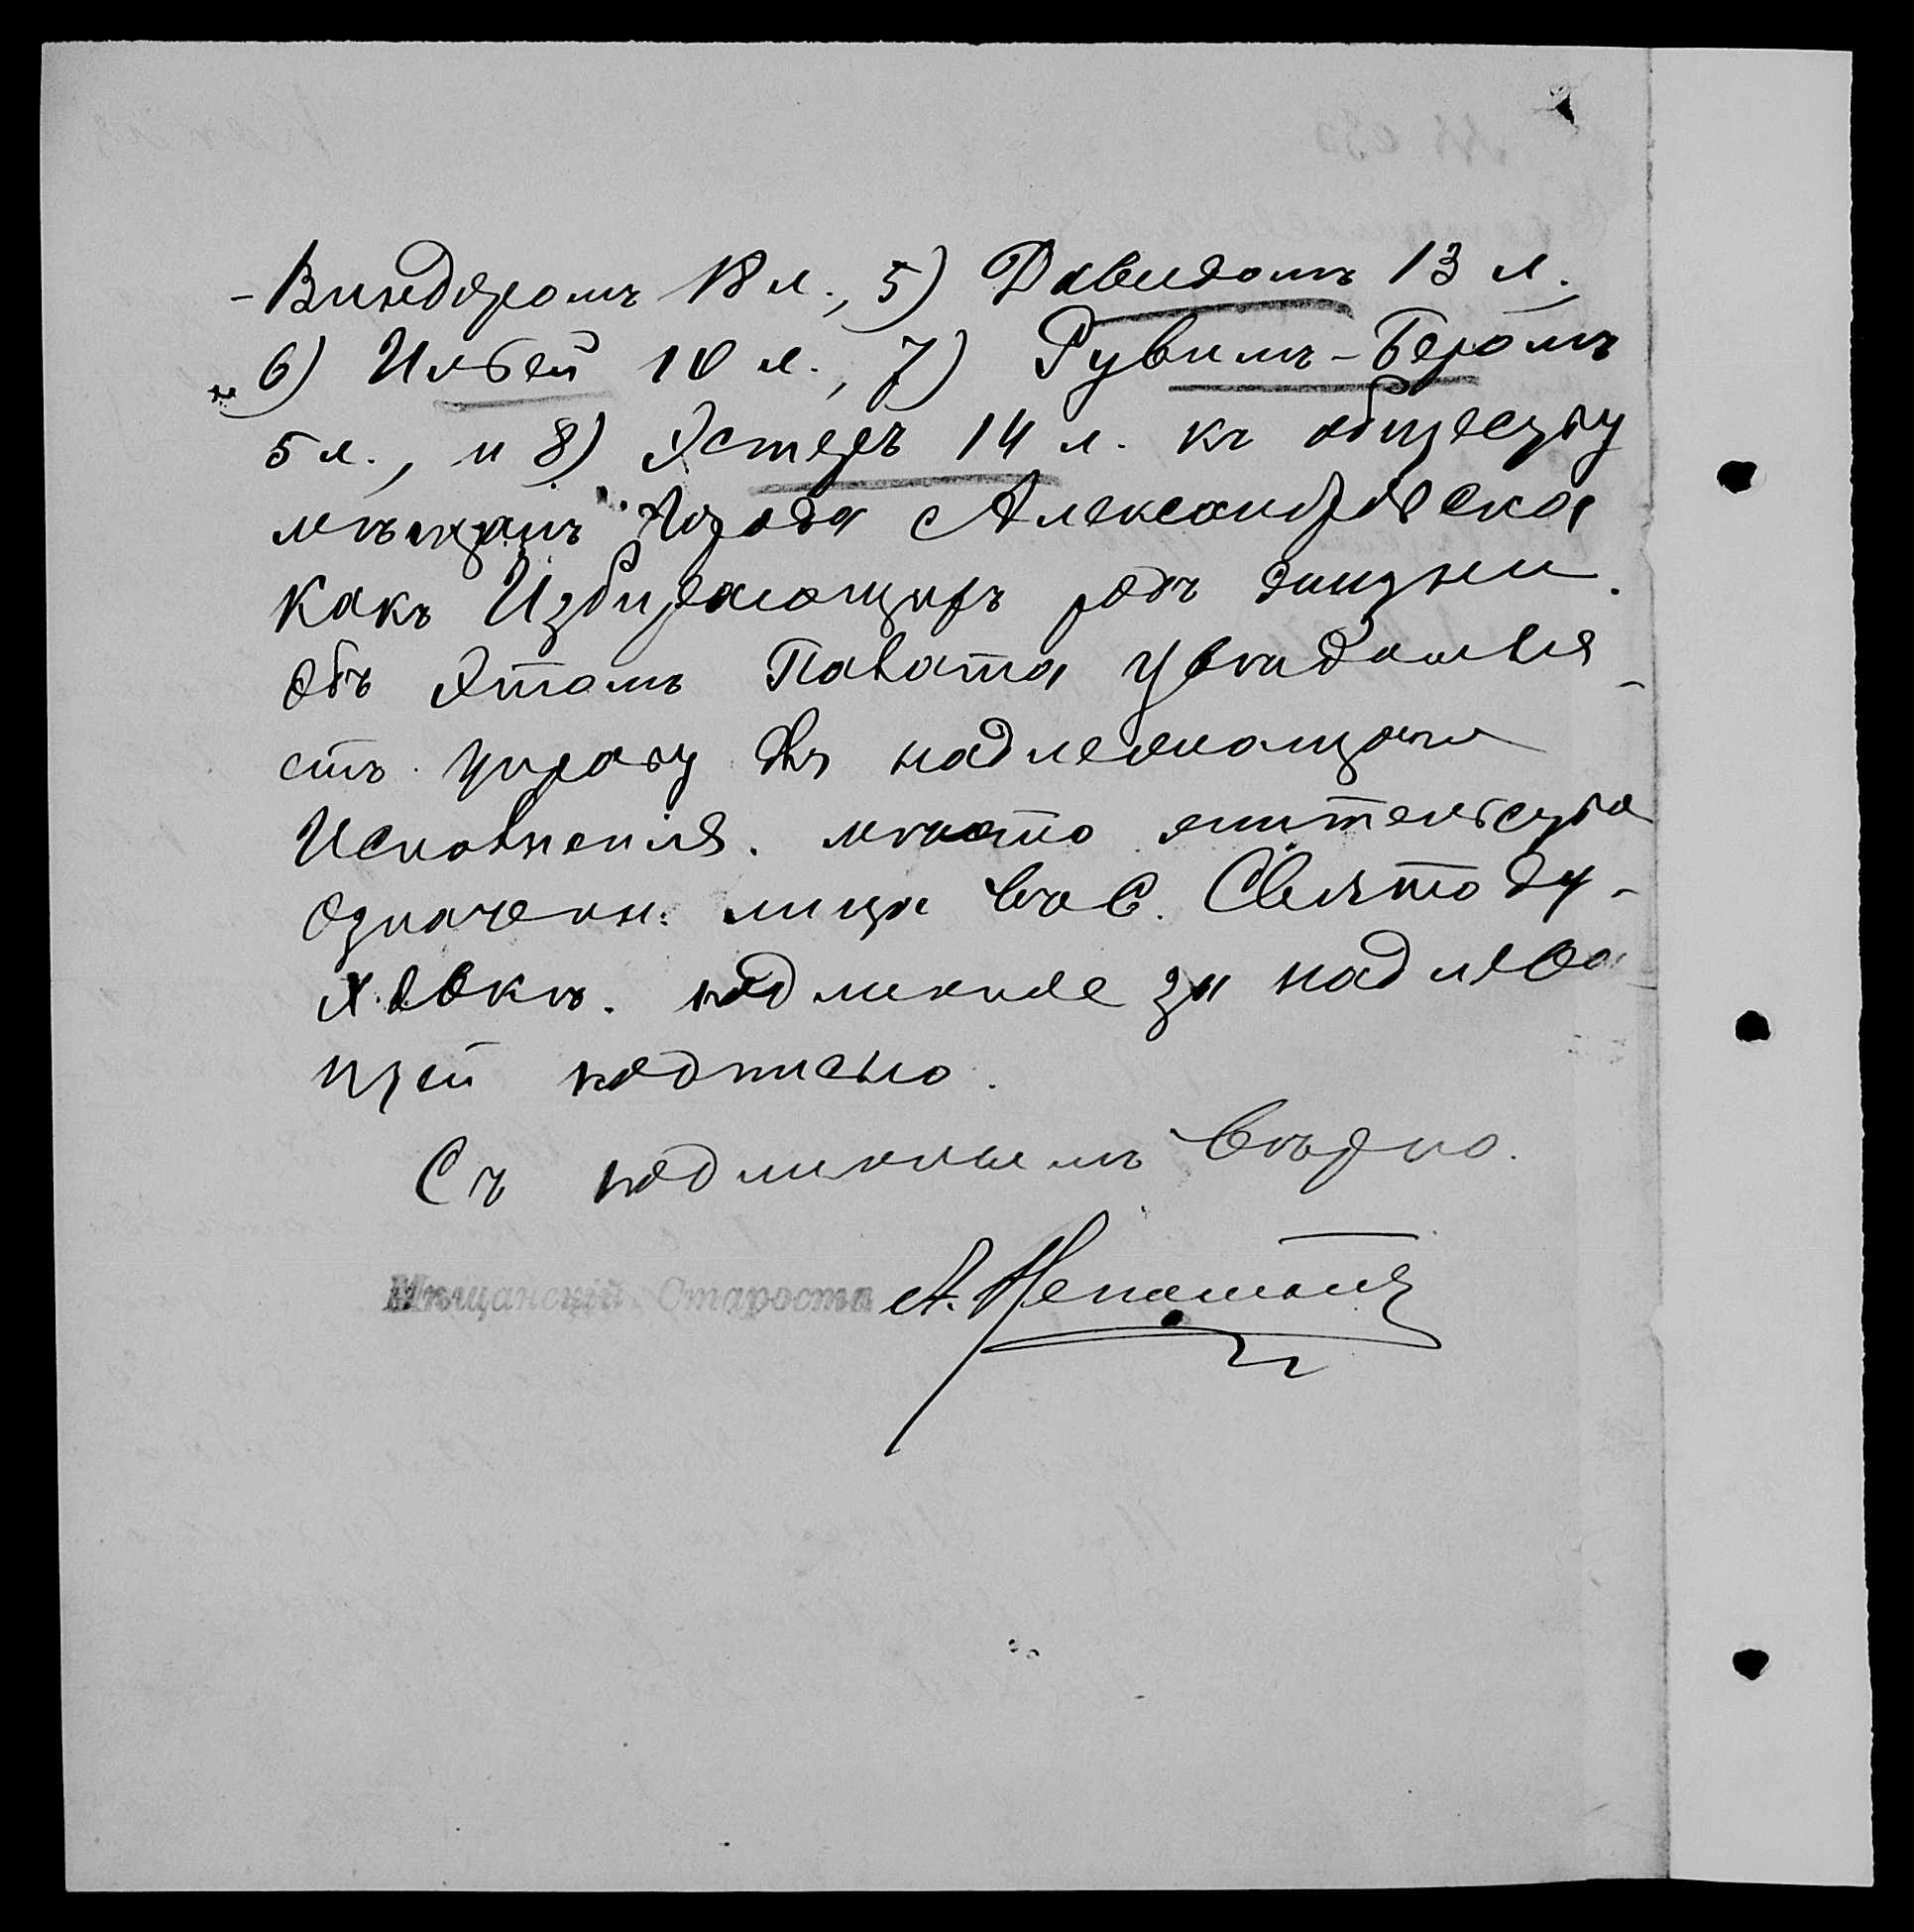 -Виндеромъ 18 л., 5) Давидомъ 13 л.,
6) Ильей 10 л., 7) Рувимъ-Беромъ
5 л., и 8) Эстеръ 14 л. къ обществу
мѣщанъ города Александровска
какъ Избирающихъ родъ жизни.
Объ этомъ Палата увѣдомля-
етъ управу для надлежащаго
Исполненія. мѣсто жительства
означен. лица въ с. Святоду-
ховкѣ. подлинное за надлежа-
щей подписью.
Съ подлиннымъ вѣрно.
Мѣщанскій Староста А.